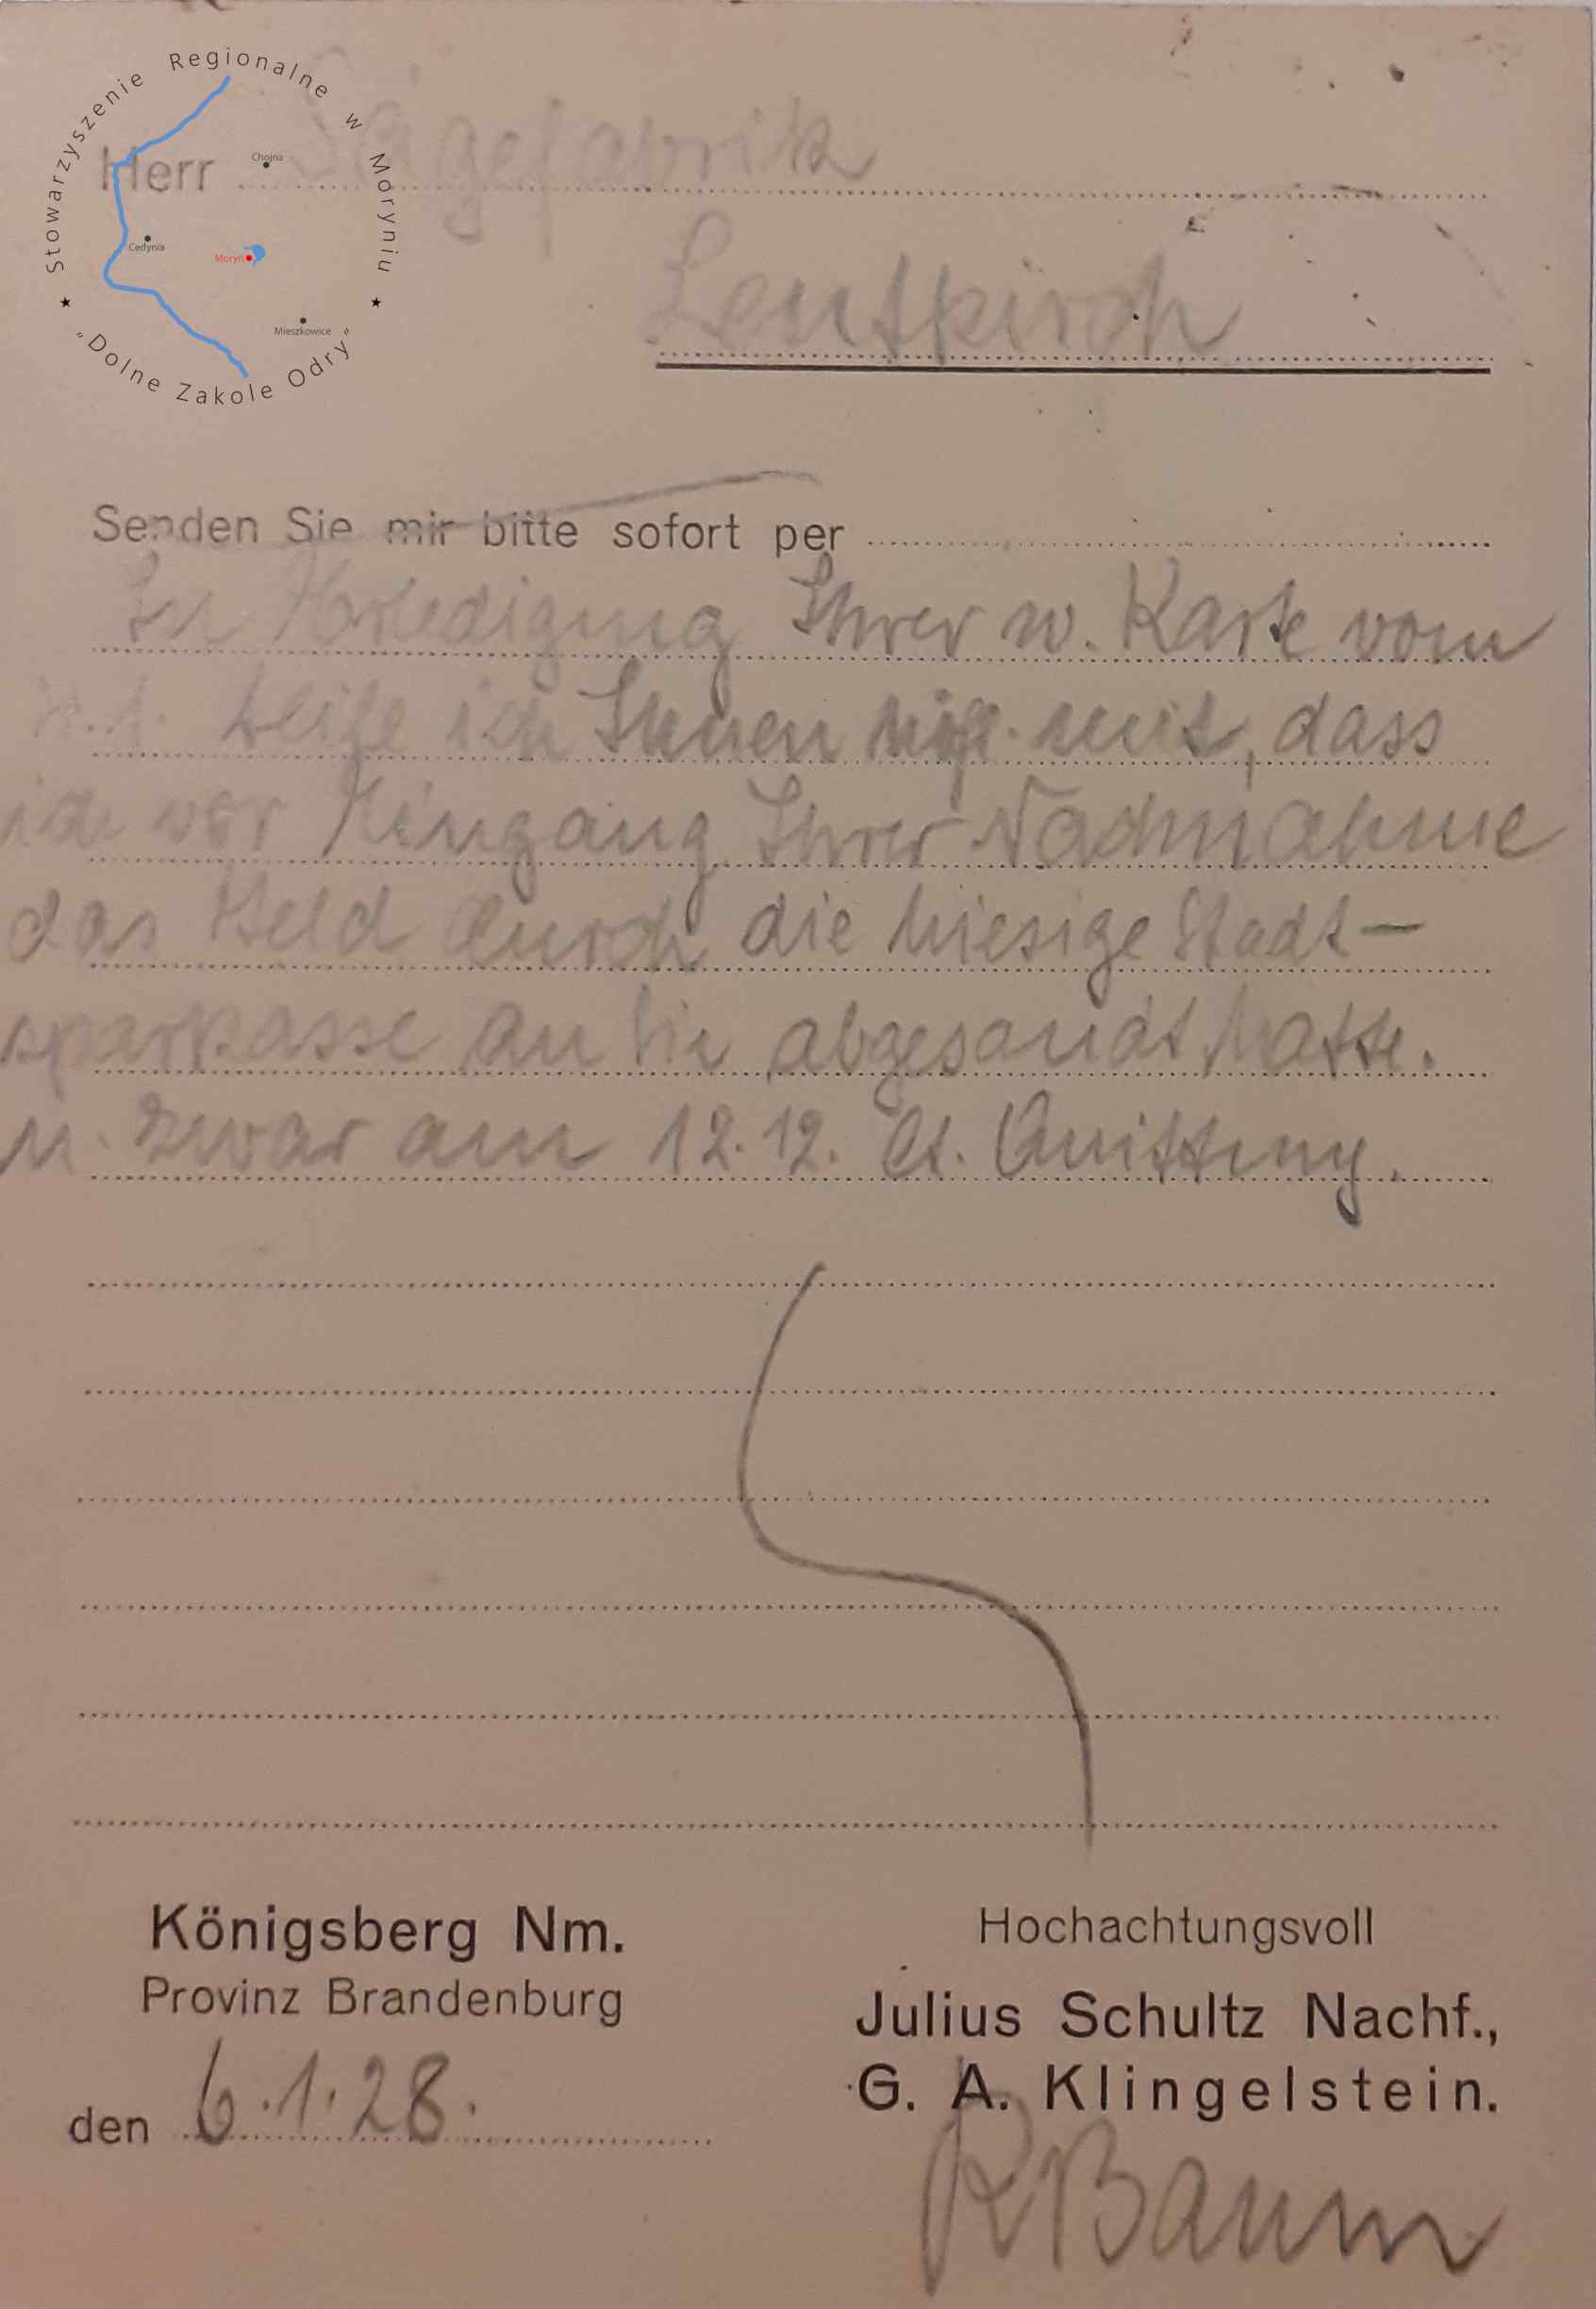 Stowarzyszenie Regionalne w Moryniu
"Dolne Zakole Odry"
Chojna
Cedynia
Moryń
Mieszkowice
Herr Sägefabrik
Leutkirch
Senden Sie mir bitte sofort per
In Erledigung Ihrer w. Karte vom
teile ich Ihnen höfl. mit, dass
ich vor Eingang Ihrer Nachnahme
das Geld durch die hiesige Stadt-
sparkasse an Sie abgesandt hatte.
u. zwar am 12.12. lt. Quittung.
Königsberg Nm.
Provinz Brandenburg
den 6.1.28.
Hochachtungsvoll
Julius Schultz Nachf.,
G. A. Klingelstein.
RBaum